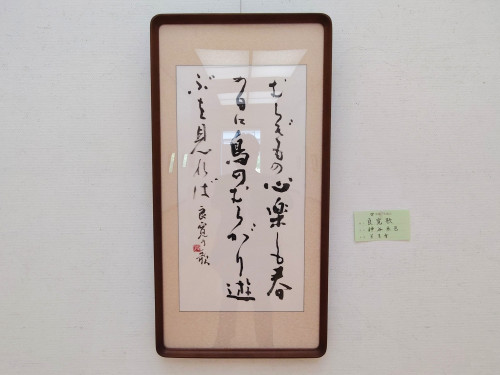 むらぎもの心楽しも春
の日に鳥のむらがり遊
ぶを見れば
良寛の歌
良寛歌